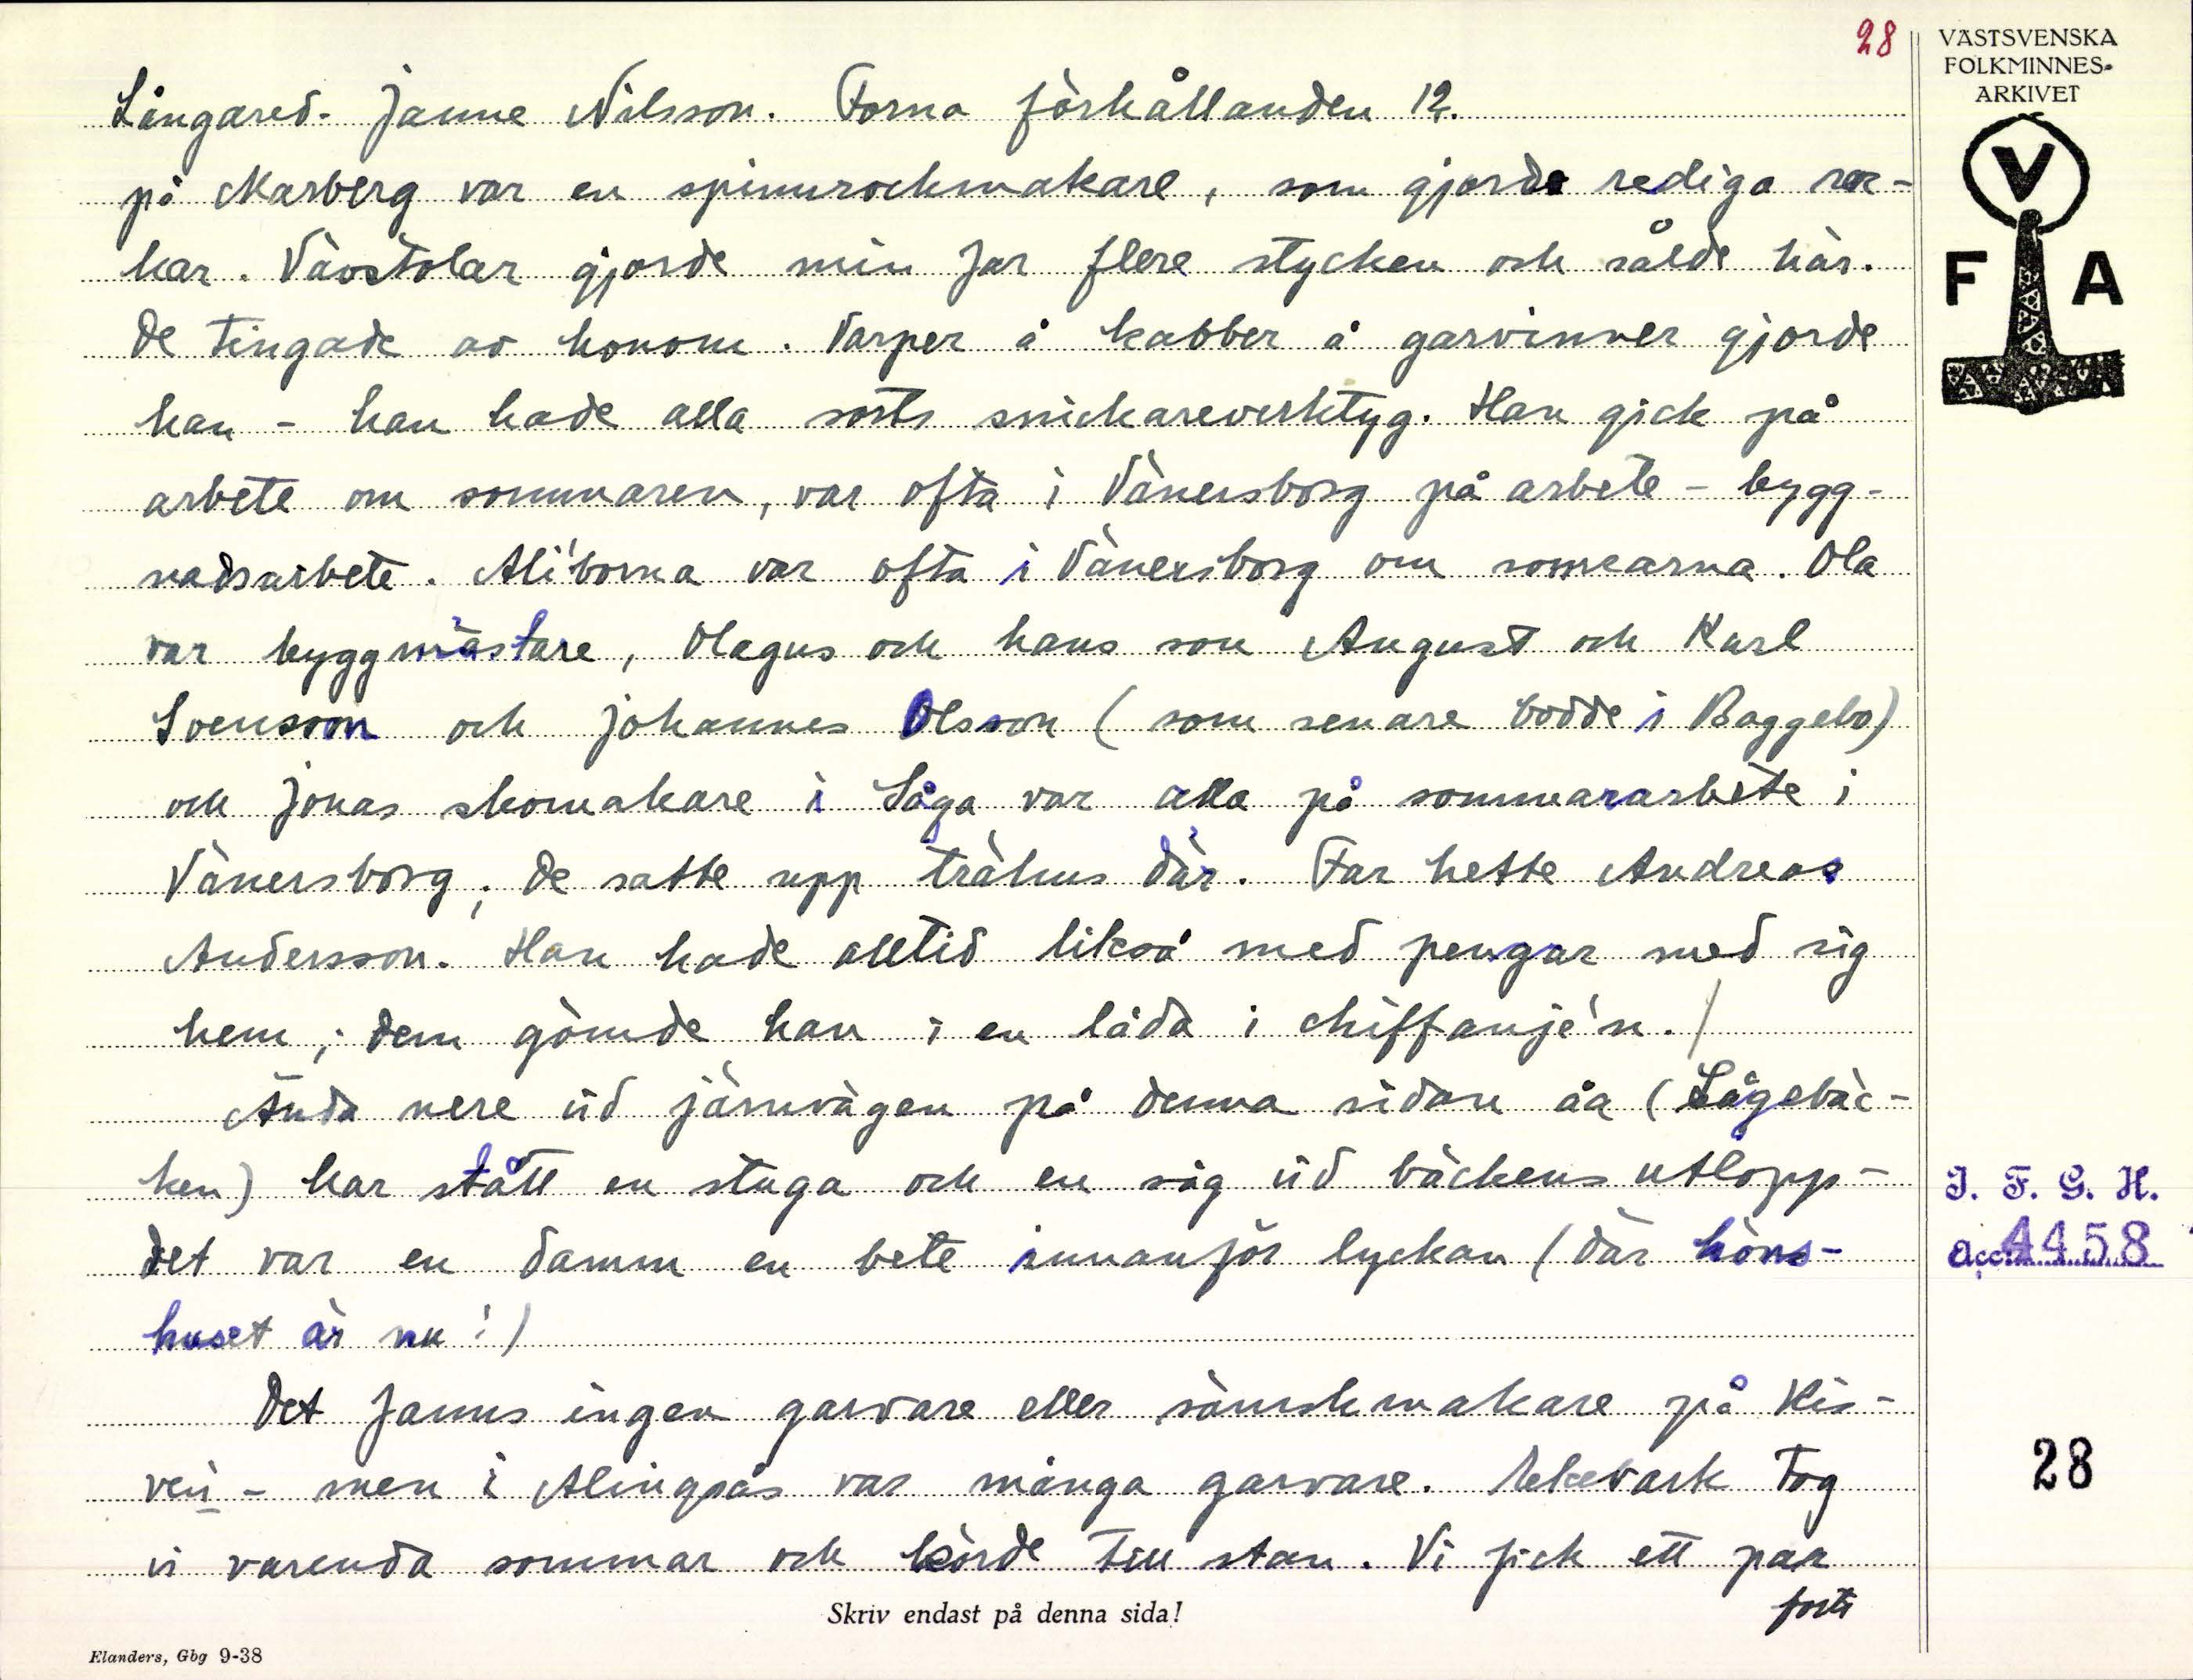 28
VÄSTSVENSKA
FOLKMINNES-
ARKIVET
V
F A
Långared. Janne Nilsson. Forna förhållanden 12.
på Marberg var en spinnrockmakare, som gjorde rediga roc-
kar. Vävstolar gjorde min far flere stycken och sålde här.
De tingade av honom. Varper å kabber å garvinner gjorde
han - han hade alla sorts snickareverktyg. Han gick på
arbete om sommaren, var ofta i Vänersborg på arbete - bygg-
nadsarbete. Ali'borna var ofta i Vänersborg om somrarna. Ola
var byggmästare, Olagus och hans son August och Karl
Svensson och Johannes Olsson (som senare bodde i Baggebo)
och Jonas skomakare i Såga var alla på sommararbete i
Vänersborg; de satte upp trähus där. Far hette Andreas
Andersson. Han hade alltid likså med pengar med sig
hem; dem gömde han i en låda i chiffonjé'n./
Ända nere vid järnvägen på denna sidan åa (Sågebäc-
ken) har stått en stuga och en såg vid bäckens utlopp -
det var en damm en bete innanför lyckan (där höns-
huset är nu!)
Det fanns ingen garvare eller sämskmakare på Kis-
ven - men i Alingsås var många garvare. Ekebark tog
vi varenda sommar och körde till stan. Vi fick ett par
forts
I. F. G. H.
Acc. 4458
28
Skriv endast på denna sida!
Elanders, Gbg 9-38